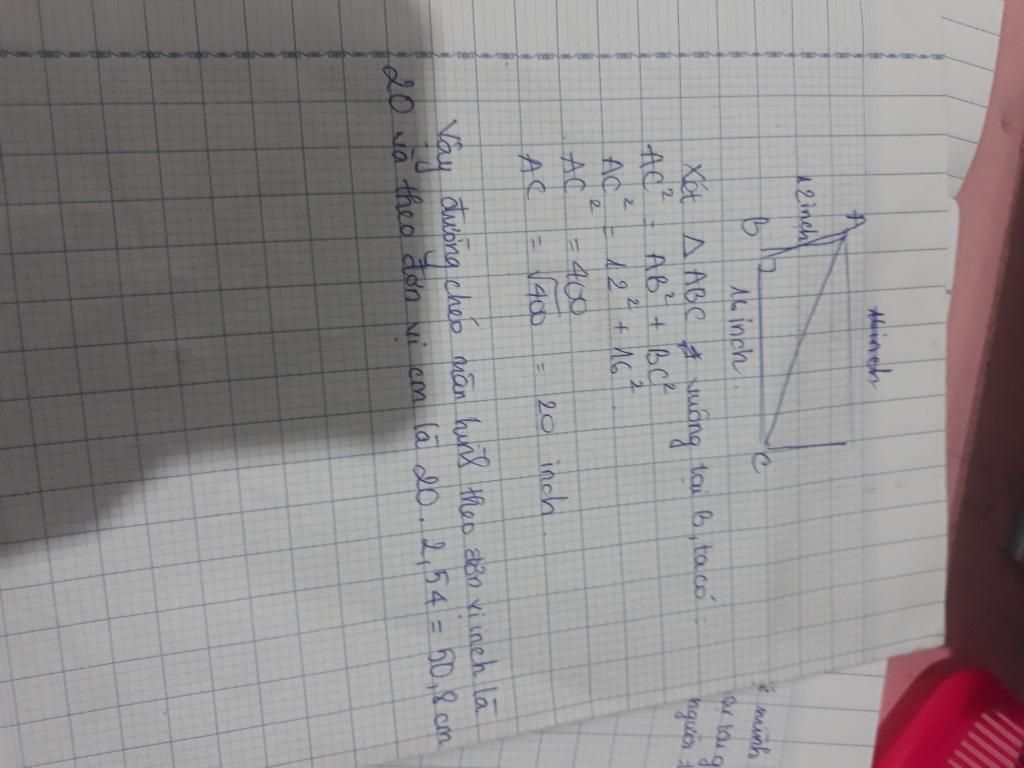 A
16 inch
12 inch
B
16 inch.
C
Xét △ ABC vuông tại B, ta có:
AC² = AB² + BC²
AC² = 12² + 16²
AC² = 400
AC = √400 = 20 inch.
Vậy đường chéo màn hình theo đơn vị inch là
20 và theo đơn vị cm là 20 . 2,54 = 50,8 cm
người